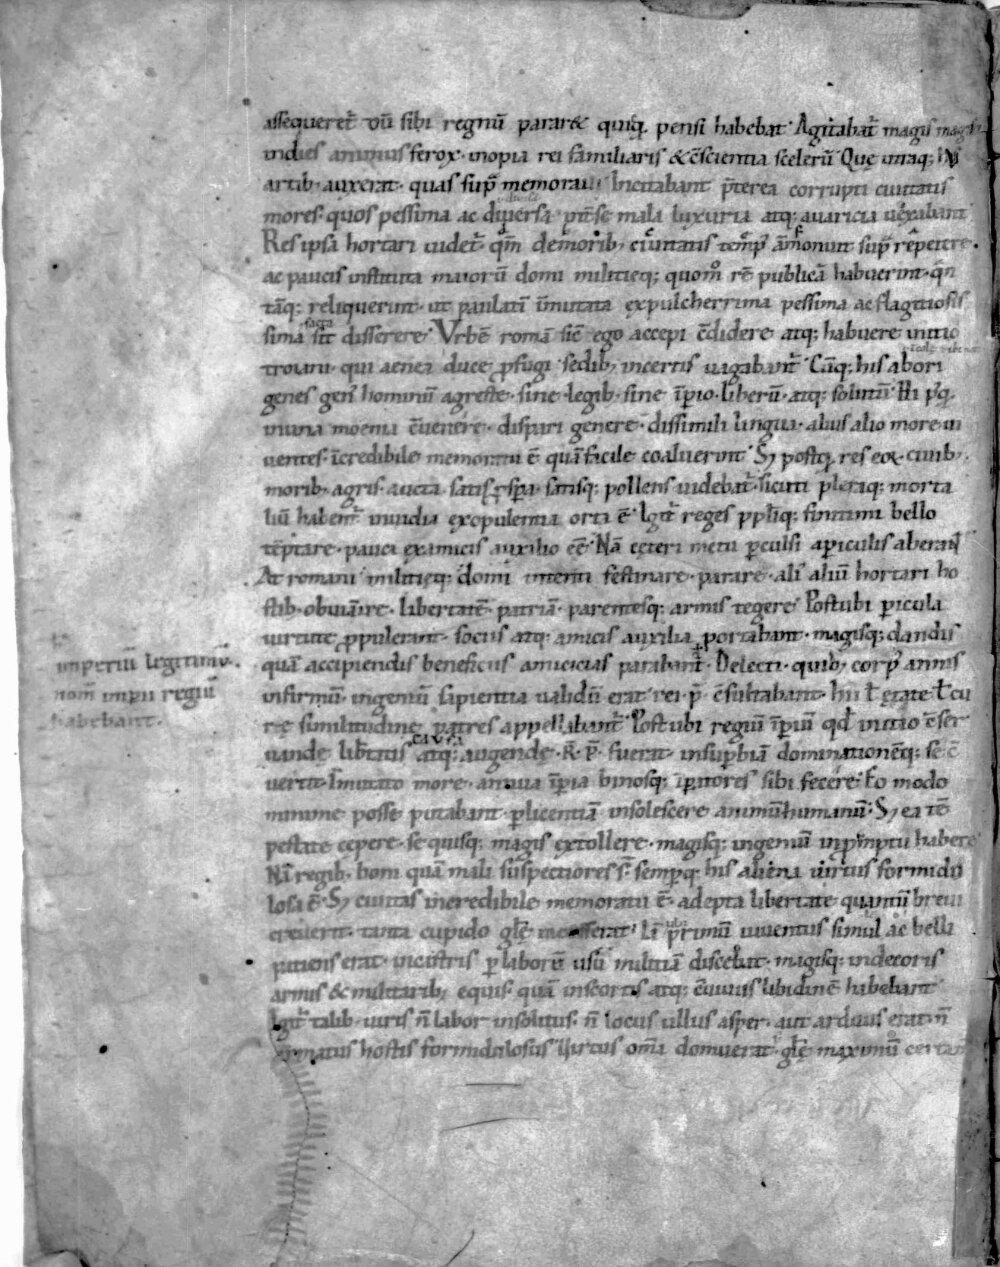 assequeret̄ dū sibi regnū parar& quiq̄ pensi habebat· Agitabat̄ magis magisq;
indies animus ferox· inopia rei familiaris & c̄scientia scelerū· Quę utraq; his
artib; auxerat· quas sup̄ memoraui· Incitabant p̄terea corrupti ciuitatis
mores· quos pessima ac diuersa int̄ se mala luxuria atq; auaricia uexabant·
Res ipsa hortari uidet̄ qm̄ de morib; ciuitatis temp̄ admonuit sup̄ repetere·
ac paucis instituta maiorū domi militięq; quom̊ rē publicā habuerint· q̄n
tāq; reliquerint· ut paulatī īmutata ex pulcherrima pessima ac flagitiosis
sima facta sit disserere· Vrbē romā sic̄ ego accepi c̄didere atq; habuere initio
troiani· qui aenea duce ꝓfugi sedib; incertis uagabant̄· Cūq; his abori
genes gen' hominū agreste· sine legib; sine īperio· liberū· atq; solutū· Hi p'q̄
in una moenia c̄uenere· dispari genere· dissimili lingua· alius alio more ui
uentes· īcredibile memoratu ē quā facile coaluerint· S; postq̄ res eoꝝ· ciuib;·
morib; agris· aucta satis ꝓspa· satisq; pollens uidebat̄· sicuti pleraq; morta
liū habent̄ inuidia ex opulentia orta ē· Igit̄ reges pp̄liq; finitimi bello
tēptare· pauci ex amicis auxilio eē· Nā cęteri metu ꝑculsi a ꝑiculis aberant
At romani militięq; domi intenti festinare· parare· ali' aliū hortari ho
stib; obuiā ire· libertatē· patriā· parentesq; armis tegere· Post ubi ꝑicula
uirtute ꝓpulerant· sociis atq; amicis auxilia portabant· magisq; dandis
quā accipiendis beneficiis amicicias parabant· Delecti· quib; corp' annis
infirmū· ingeniū sapientia ualidū erat· rei· p̄· c̄sultabant· hii ł ętate ł cu
rę similitudine patres appellabant̄· Post ubi regiū īperiū qđ initio c̄ser
uandę lib̄tatis causa atq; augendę· R· P̄· fuerat· in suꝑbiā dominationēq; se c̄
uertit· Inmutato more· annua īperia binosq; īperitores sibi fecere· Eo modo
minime posse putabant· ꝑ licentiā insolescere animū humanū· S; ea tē
pestate cępere· se quisq; magis extollere· magisq; ingeniū in prōptu habere
Nā regib; boni quā mali suspectiores s̄· semꝑq; his aliena uirtus formidu
losa ē· S; ciuitas incredibile memoratu ē· adepta libertate quantū breui
creuerit· tanta cupido glę incesserat· Iā primū iuuentus simul ac belli
patiens erat· in castris ꝑ laborē usū militiā discebat· magisq; in decoris
armis & militarib; equis· quā in scortis atq; c̄uiuiis libidinē habebant·
Igit̄ talib; uiris n̄ labor insolitus· n̄ locus ullus asper· aut arduus erat· n̄
armatus hostis formidolosus· uirtus om̄a domuerat· s; glę maximū certam̄
imperiū legitimū·
nom̄ imperii regiū
habebant·